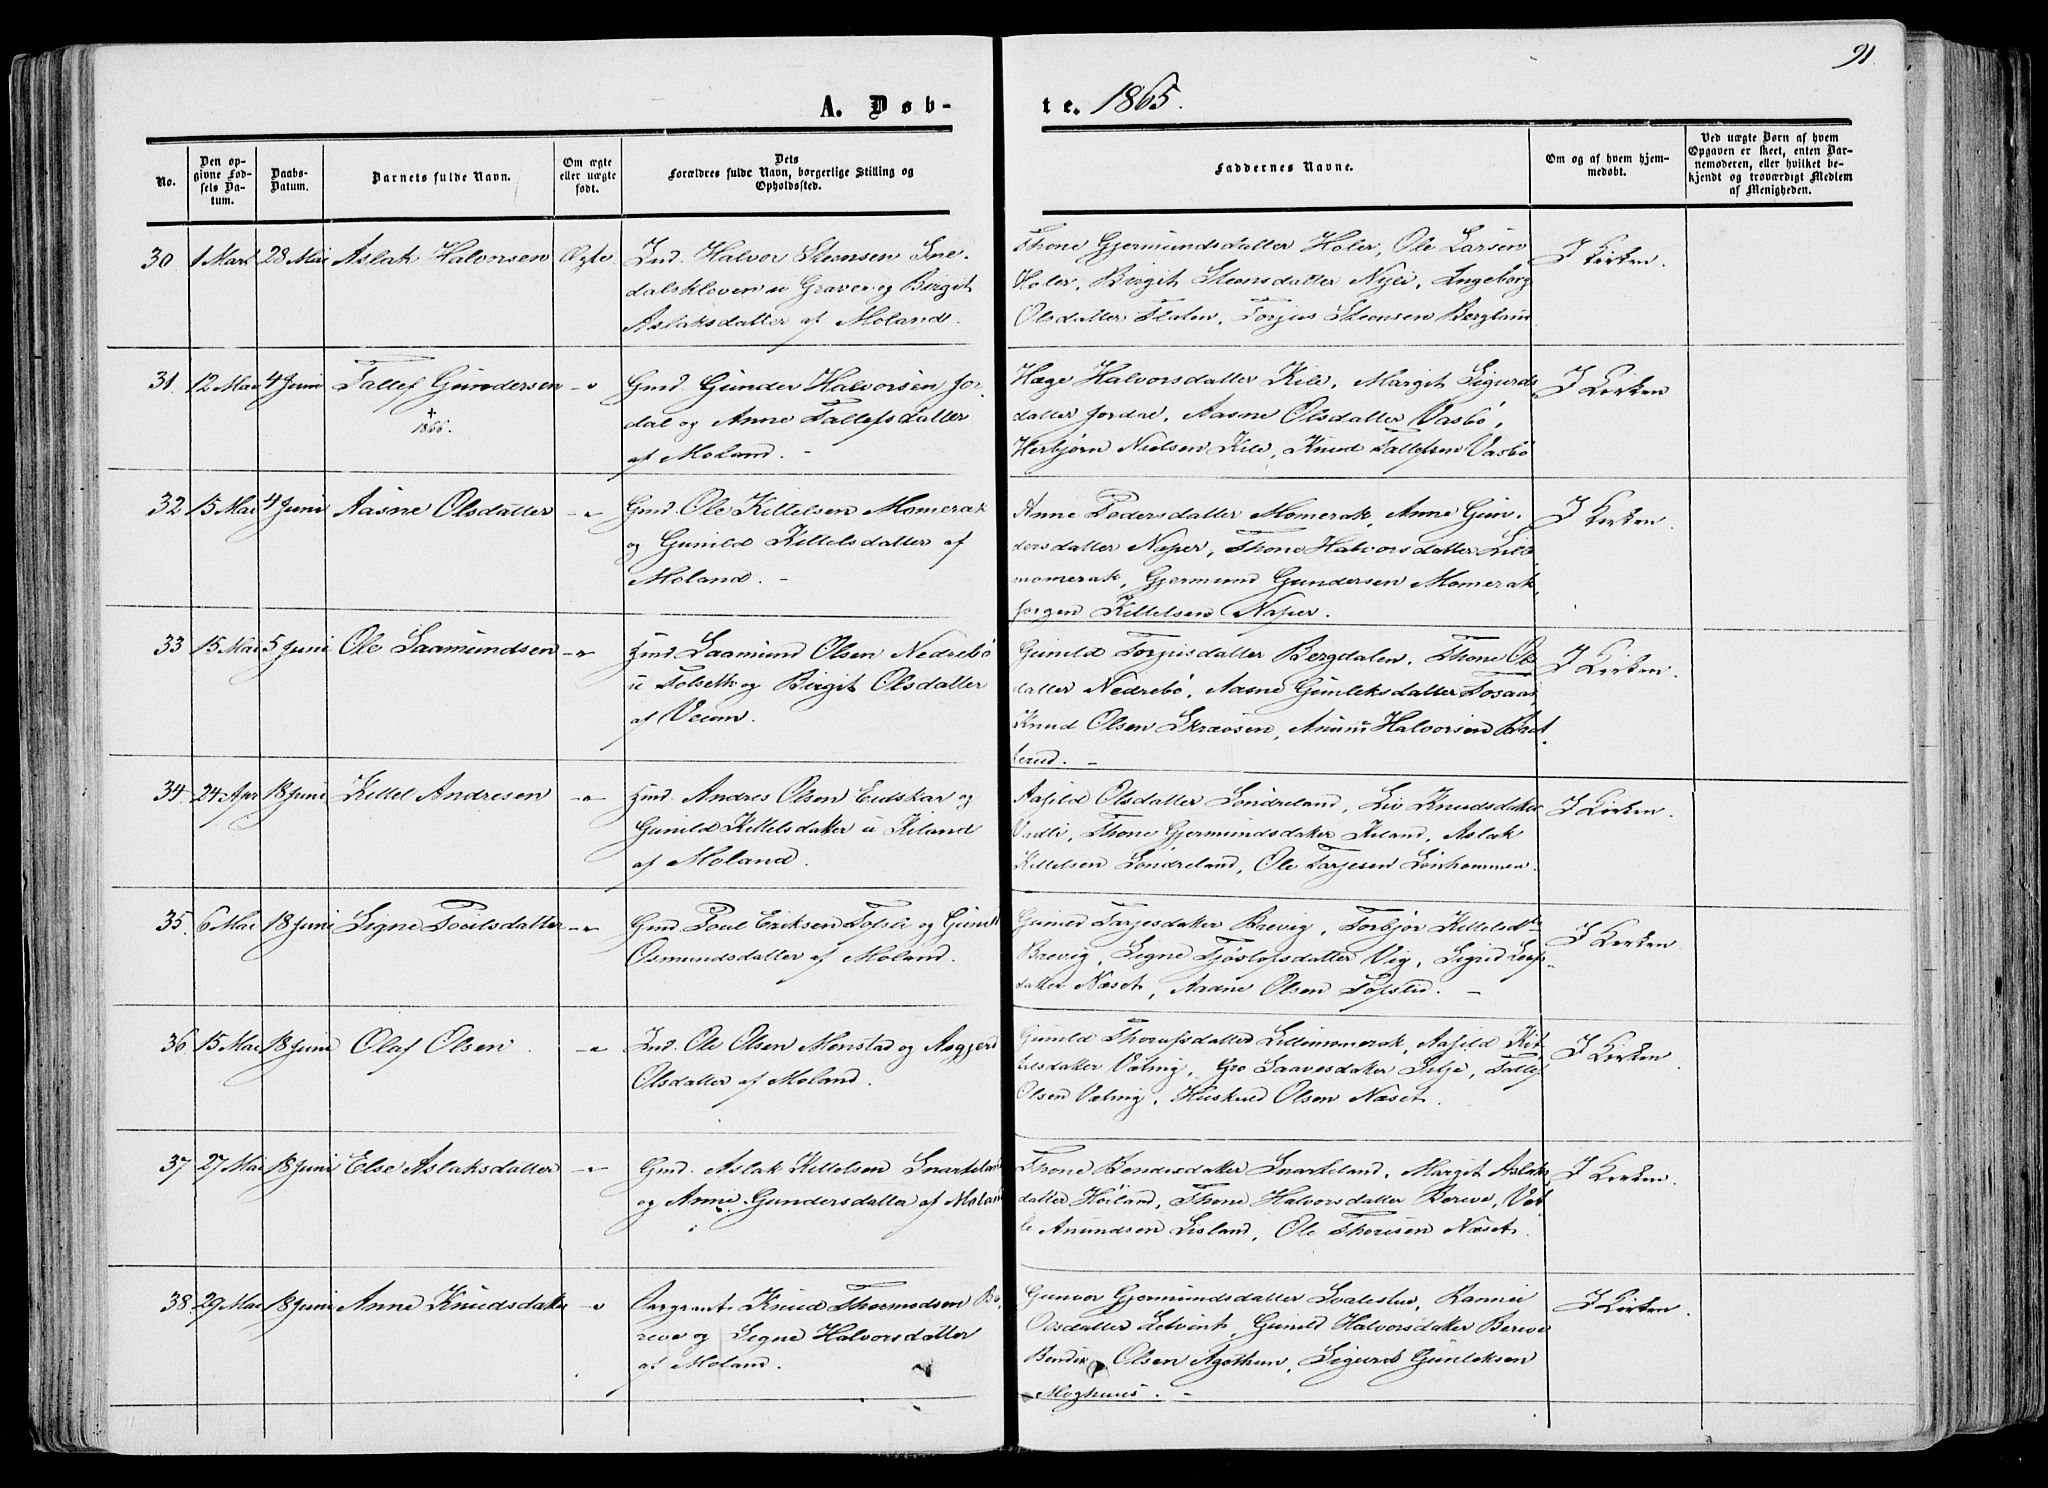 91
A. Døb-
te. 1865.
No.
Den op-
givne Fød-
sels Da-
tum.
Daabs-
Datum.
Barnets fulde Navn.
Om ægte
eller uægte
født.
Dets
Forældres fulde Navn, borgerlige Stilling og
Opholdssted.
Faddernes Navne.
Om og af hvem hjem-
medøbt.
Ved uægte Børn af hvem
Opgaven er skeet, enten Bar-
nemoderen, eller hvilket be-
kjendt og troværdigt Medlem
af Menigheden.
30 1 Mart 28 Mai Aslak Halvorsen Ægte Ind. Halvor Steensen Sne-
dalskleven u Graver og Birgit
Aslaksdatter af Moland.
Thone Gjermundsdatter Holer, Ole Larsen
Holer, Birgit Steensdatter Nylei, Ingeborg
Olsdatter Flaten, Torjus Steensen Bergland
I Kirken.
31. 12 Mai 4 Juni Tallef Gundersen -"-
+
1866.
Gmd. Gunder Halvorsen Jor-
dal og Anne Tallefsdatter
af Moland. -
Hæge Halvorsdatter Kile, Margit Sigurds
datter Jordal, Aasne Olsdatter Vasbö,
Herbjørn Nielsen Kile, Knud Tallefsen Vasbö
I Kirken
32 15 Mai 4 Juni Aasne Olsdatter -"- Gmd. Ole Kittelsen Momerak
og Gunild Kittelsdatter af
Moland. -
Anne Pedersdatter Momerak, Anne Gun-
dersdatter Naper, Thone Halvorsdatter Lille
momerak, Gjermund Gundersen Momerak,
Jørgen Kittelsen Naper.
I Kirken.
33 15 Mai 5 Juni Ole Saamundsen -"- Hmd. Saamund Olsen Nedrebö
u Folseth og Birgit Olsdatter
af Veum.
Gunild Torjusdatter Bergdalen, Thone Ols
datter Nedrebö, Aasne Gunleksdatter Fosaas,
Knud Olsen Skraaosen, Anund Halvorsen
terud. -
I Kirken.
34. 24 Apr 18 Juni Kittel Andresen -"- Hmd. Andres Olsen Eidskar og
Gunild Kittelsdatter u Kiland
af Moland.
Aasild Olsdatter Söndreland, Liv Knudsdatter
Vadli, Thone Gjermundsdatter Kiland, Aslak
Kittelsen Söndreland, Ole Tarjesen Lönhommen.
I Kirken.
35. 6 Mai 18 Juni Signe Poulsdatter -"- Gmd. Poul Eriksen Tofsli og Gunild
Osmundsdatter af Moland.
Gunild Tarjesdatter Brevig, Torbjør Kittelsdtr
Brevig, Signe Tjöstolfsdatter Vig, Sigrid Leifs-
datter Næset, Aadne Olsen Tofsli. -
I Kirken
36 15 Mai 18 Juni Olaf Olsen -"- Ind. Ole Olsen Monstad og Asgjerd
Olsdatter af Moland.
Gunild Thorufsdatter Lillemomerak, Aasild Kit-
telsdatter Væting, Gro Saavesdatter Silje, Tallef
Olsen Væting, Huskuld Olsen Næset.
I Kirken
37 27 Mai 18 Juni Else Aslaksdatter -"- Gmd. Aslak Kittelsen Snarteland
og Anne Gundersdatter af Moland
Thone Bendixdatter Snarteland, Margit Aslaks
datter Höiland, Thone Halvorsdatter Bereve, Vet-
le Anundsen Lisland, Ole Thoresen Næset.
I Kirken.
38 29 Mai 18 Juni Anne Knudsdatter -"- Sargeant Knud Thormodsen Be-
reve og Signe Halvorsdatter
af Moland.
Gunvor Gjermundsdatter Svalestue, Rannei
Olsdatter Letvint, Gunild Halvorsdatter Bereve
Bendix Olsen Agothun, Sigurd Gunleksen
Moghuus. -
I Kirken.